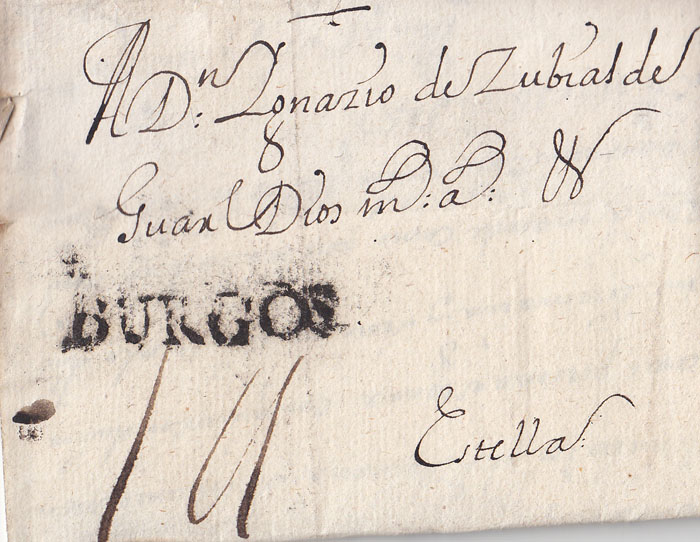 A D.n Ygnazio de Zubialde
Guar Dios m.s a.s &
BURGOS
Estella